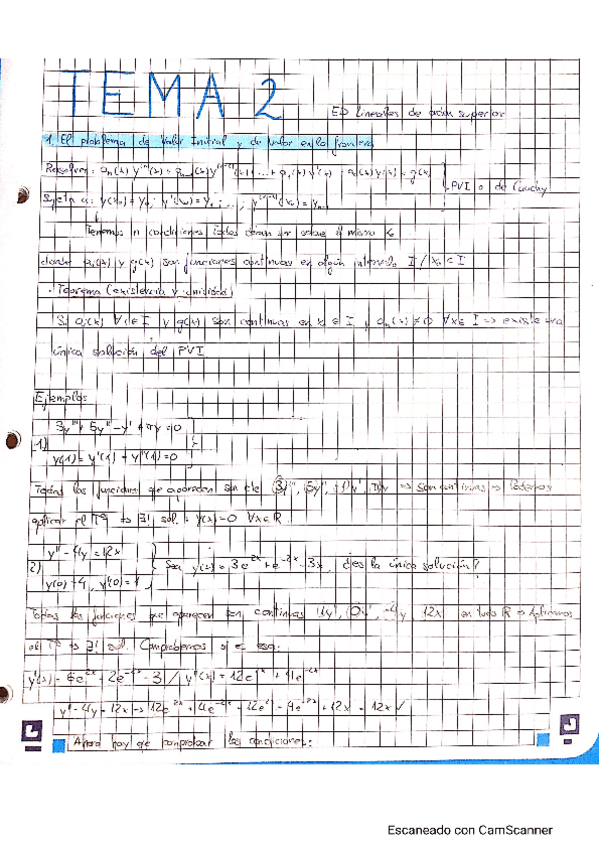 TEMA 2
ED lineales de orden superior
1. El problema de Valor Inicial y de Valor en la frontera
Resolver: aₙ(x) yⁿ⁾(x) + aₙ₋₁(x) yⁿ⁻¹⁾(x) + ... + a₁(x) y'(x) + a₀(x) y(x) = g(x)
Sujeta a: y(x₀) = y₀; y'(x₀) = y₁; ...; yⁿ⁻¹⁾(x₀) = yₙ₋₁
PVI o de Cauchy
Tenemos n condiciones todas dadas sobre el mismo x₀
donde aᵢ(x) y g(x) son funciones continuas en algún intervalo I / x₀ ∈ I
· Teorema (existencia y unicidad)
Si aᵢ(x) ∀i ∈ I y g(x) son continuas en x ∈ I y aₙ(x) ≠ 0 ∀x ∈ I => existe una
única solución del PVI
Ejemplos
1)
3y''' + 5y'' - y' + πy = 0
y(1) = y'(1) = y''(1) = 0
Todas las funciones que aparecen son cte (3y''', 5y'', -1y', πy => son continuas => Podemos
aplicar el Tª => ∃! sol. : y(x) = 0 ∀x ∈ R
2)
y'' - 4y = 12x
y(0) = 4, y'(0) = 1
Sea y(x) = 3e²ˣ + e⁻²ˣ - 3x, ¿es la única solución?
Todas las funciones que aparecen son continuas 1y'', 0y', -4y, 12x en todo R => Aplicamos
el Tª => ∃! sol. Comprobemos si es esa:
y'(x) = 6e²ˣ - 2e⁻²ˣ - 3 / y''(x) = 12e²ˣ + 4e⁻²ˣ
y'' - 4y = 12x -> 12e²ˣ + 4e⁻²ˣ - 12e²ˣ - 4e⁻²ˣ + 12x = 12x ✓
Ahora hay que comprobar las condiciones:
Escaneado con CamScanner